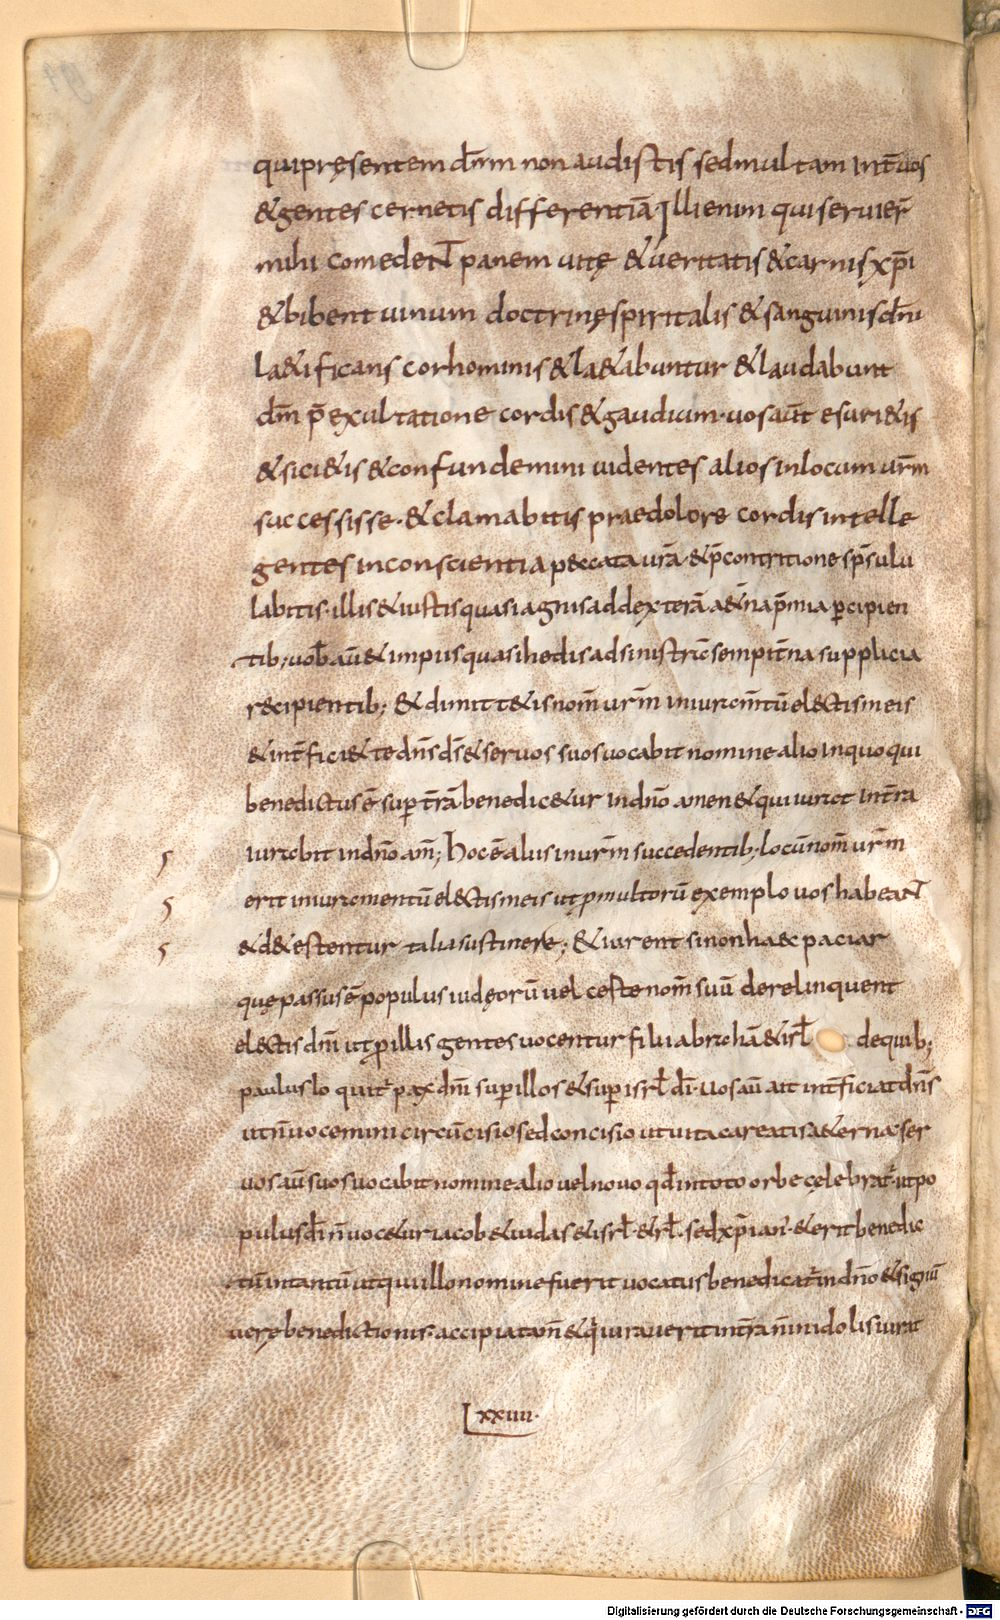 quipręsentem dn̄m non audistis sed multam int̄ uos
&gentes cernetis differentiā. Illi enim qui seruier̄
mihi comedeNT panem uitę & ueritatis & carnis xp̄i
& bibent uinum doctrinę spiritalis & sanguinis dn̄i
l&ificans cor hominis & l&abuntur & laudabunt
dn̄m p̄ exultatione cordis & gaudium. uos aūt esuri&is
& sici&is & confundemini uidentes alios in locum ur̄m
successisse. & clamabitis prae dolore cordis intelle
gentes in conscientia peccata ur̄a. & p̄ contritione sp̄s ulu
labitis. illis & iustis quasi agnis ad dexterā a&n̄a p̄mia percipien
tib; uob̄ aū & impiis quasi hedis ad sinistrā sempit̄na supplicia
recipientib; & dimitt&is nom̄ ur̄m in iuram̄tū el&tis meis
& int̄fici& te dn̄s ds̄ & seruos suos uocabit nomine alio in quo qui
benedictus ē sup t̄rā benedic&ur in dn̄o amen & qui iurat in t̄ra
iurabit in dn̄o am̄; hoc ē aliis in ur̄m succedentib; locū nom̄ ur̄m
5
erit in iuramentū el&tis meis ut p multorū exemplo uos habeaNT
5
& d&estentur talia sustinere; & iurent si non haec paciar
5
quę passus ē populus iudęorū uel certe nom̄ suū derelinquent
el&tis dn̄i ut p illis gentes uocentur filii abrahā & isrl̄ de quib;
paulus loquitr̄ pax dn̄i super illos & super isrl̄ dī. uos aū ait int̄ficiat dn̄s
ut n̄ uocemini circūcisio sed concisio ut uita careatis a&erna. ser
uos aū suos uocabit nomine alio uel nouo qd̄ in toto orbe celebratr̄. ut po
pulus dī n̄ uoc&ur iacob & iudas & isrl̄ & isrl̄. sed xp̄iani. & erit benedic
tū in tantū ut qui illo nomine fuerit uocatus benedicatr̄ in dn̄o & signū
uerę benedictionis. accipiat am̄ & qui iurauerit in t̄ra n̄ in idolis iurat
Lxxiiii.
Digitalisierung gefördert durch die Deutsche Forschungsgemeinschaft - DFG